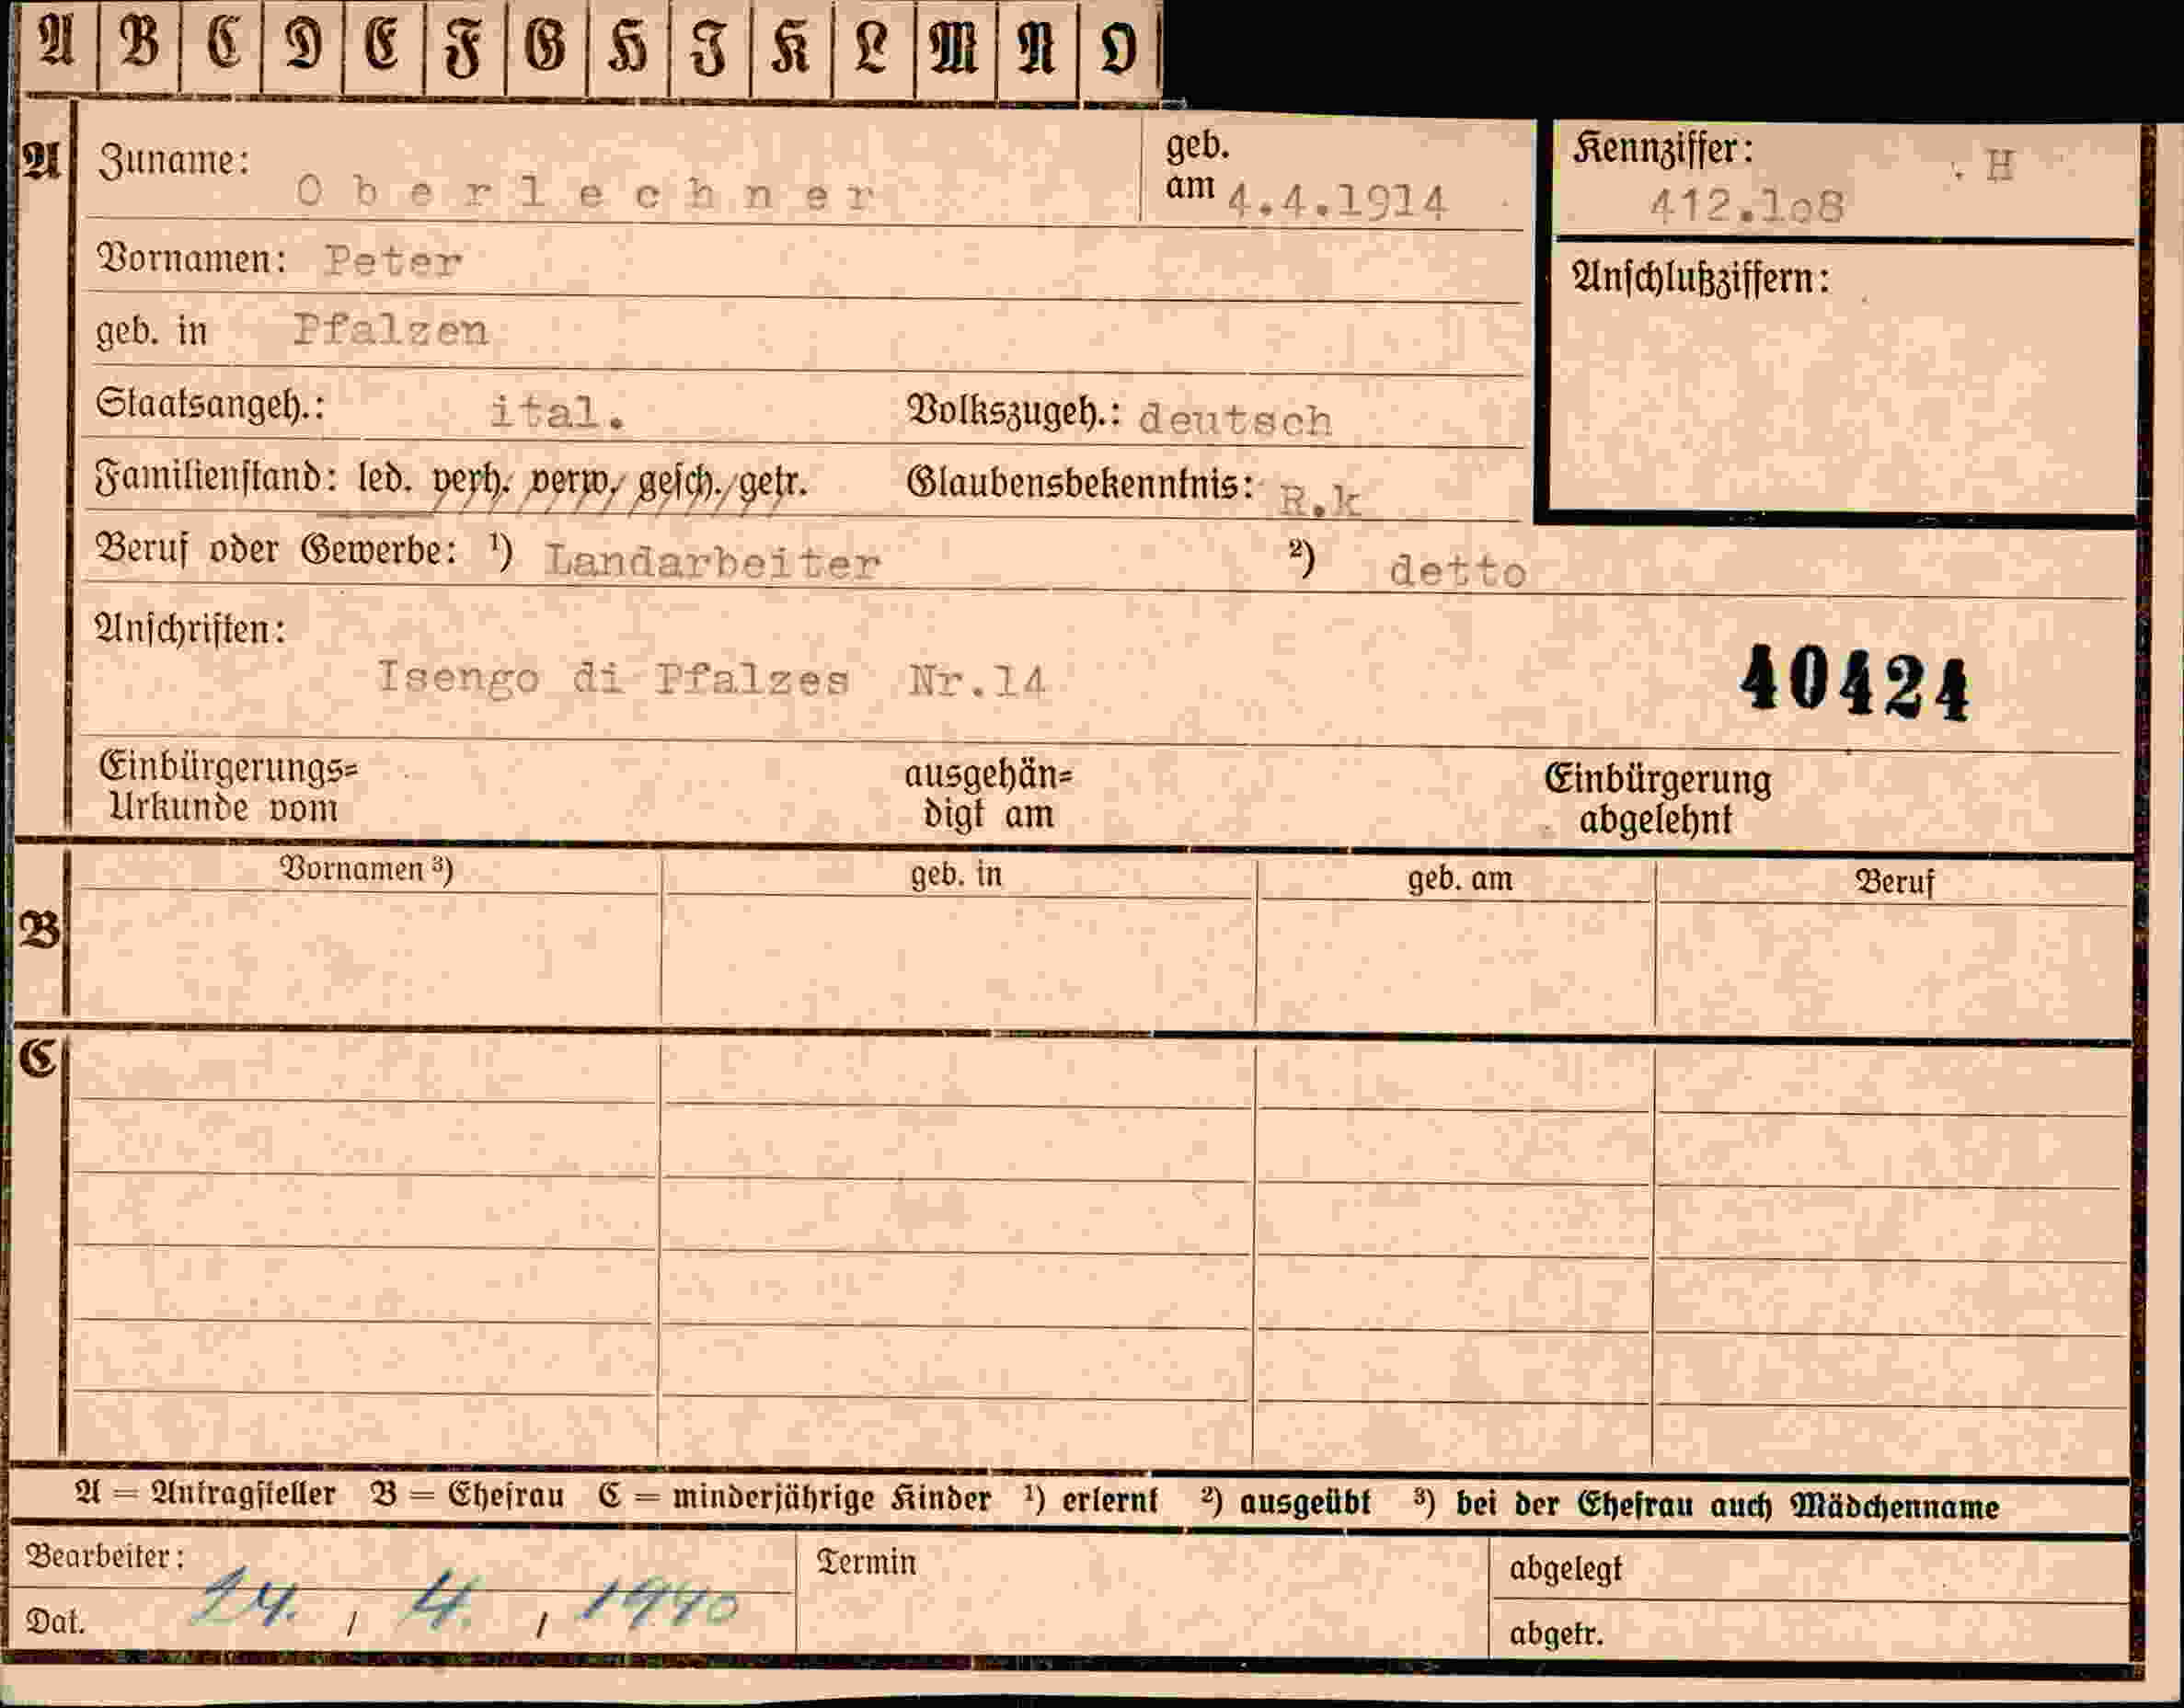 A B C D E F G H I K L M N O
A Zuname: Oberlechner geb. am 4.4.1914 Kennziffer: . H 412.1o8
Vornamen: Peter Anschlußziffern:
geb. in Pfalzen
Staatsangeh.: ital. Volkszugeh.: deutsch
Familienstand: led. verh. verw. gesch. getr. Glaubensbekenntnis: R.k
Beruf oder Gewerbe: ¹) Landarbeiter ²) detto
Anschriften:
Isengo di Pfalzes Nr.14 40424
Einbürgerungs= ausgehän= Einbürgerung
Urkunde vom digt am abgelehnt
Vornamen ³) geb. in geb. am Beruf
B
C
A = Antragsteller B = Ehefrau C = minderjährige Kinder ¹) erlernt ²) ausgeübt ³) bei der Ehefrau auch Mädchenname
Bearbeiter: Termin abgelegt
Dat. 24. / 4. / 1940 abgetr.